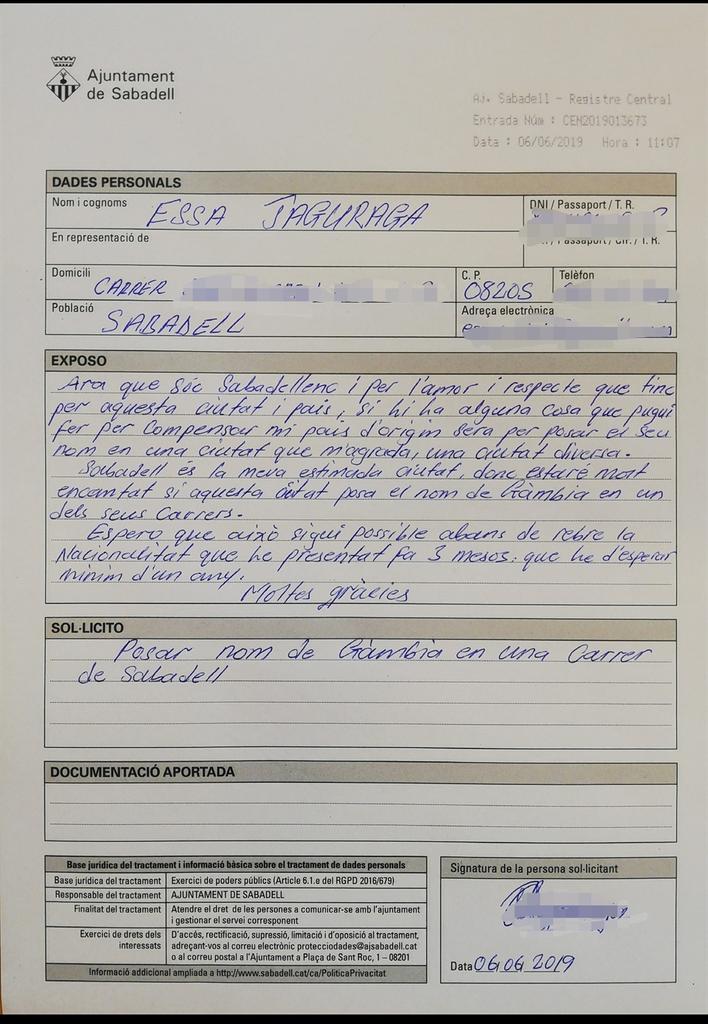 Ajuntament
de Sabadell
Aj. Sabadell - Registre Central
Entrada Núm : CEN2019013673
Data : 06/06/2019 Hora : 11:07
DADES PERSONALS
Nom i cognoms
ESSA JAGURAGA
DNI / Passaport / T. R.
En representació de
Domicili
CARRER
C. P.
08205
Telèfon
Població
SABADELL
Adreça electrònica
EXPOSO
Ara que sóc Sabadellenc i per l'amor i respecte que tinc
per aquesta ciutat i país, si hi ha alguna cosa que pugui
fer per compensar mi país d'origin serà per posar el seu
nom en una ciutat que m'agrada, una ciutat diversa.
Sabadell és la meva estimada ciutat, donc estaré molt
encantat si aquesta ciutat posa el nom de Gàmbia en un
dels seus carrers.
Espero que això sigui possible abans de rebre la
Nacionalitat que he presentat fa 3 mesos: que he d'esperar
minim d'un any.
Moltes gràcies
SOL·LICITO
Posar nom de Gàmbia en una carrer
de Sabadell
DOCUMENTACIÓ APORTADA
Base jurídica del tractament i informació bàsica sobre el tractament de dades personals
Base jurídica del tractament Exercici de poders públics (Article 6.1.e del RGPD 2016/679)
Responsable del tractament AJUNTAMENT DE SABADELL
Finalitat del tractament Atendre el dret de les persones a comunicar-se amb l'ajuntament
i gestionar el servei corresponent
Exercici de drets dels D'accés, rectificació, supressió, limitació i d'oposició al tractament,
interessats adreçant-vos al correu electrònic protecciodades@ajsabadell.cat
o al correu postal a l'Ajuntament a Plaça de Sant Roc, 1 – 08201
Informació addicional ampliada a http://www.sabadell.cat/ca/PoliticaPrivacitat
Signatura de la persona sol·licitant
Data 06/06/2019